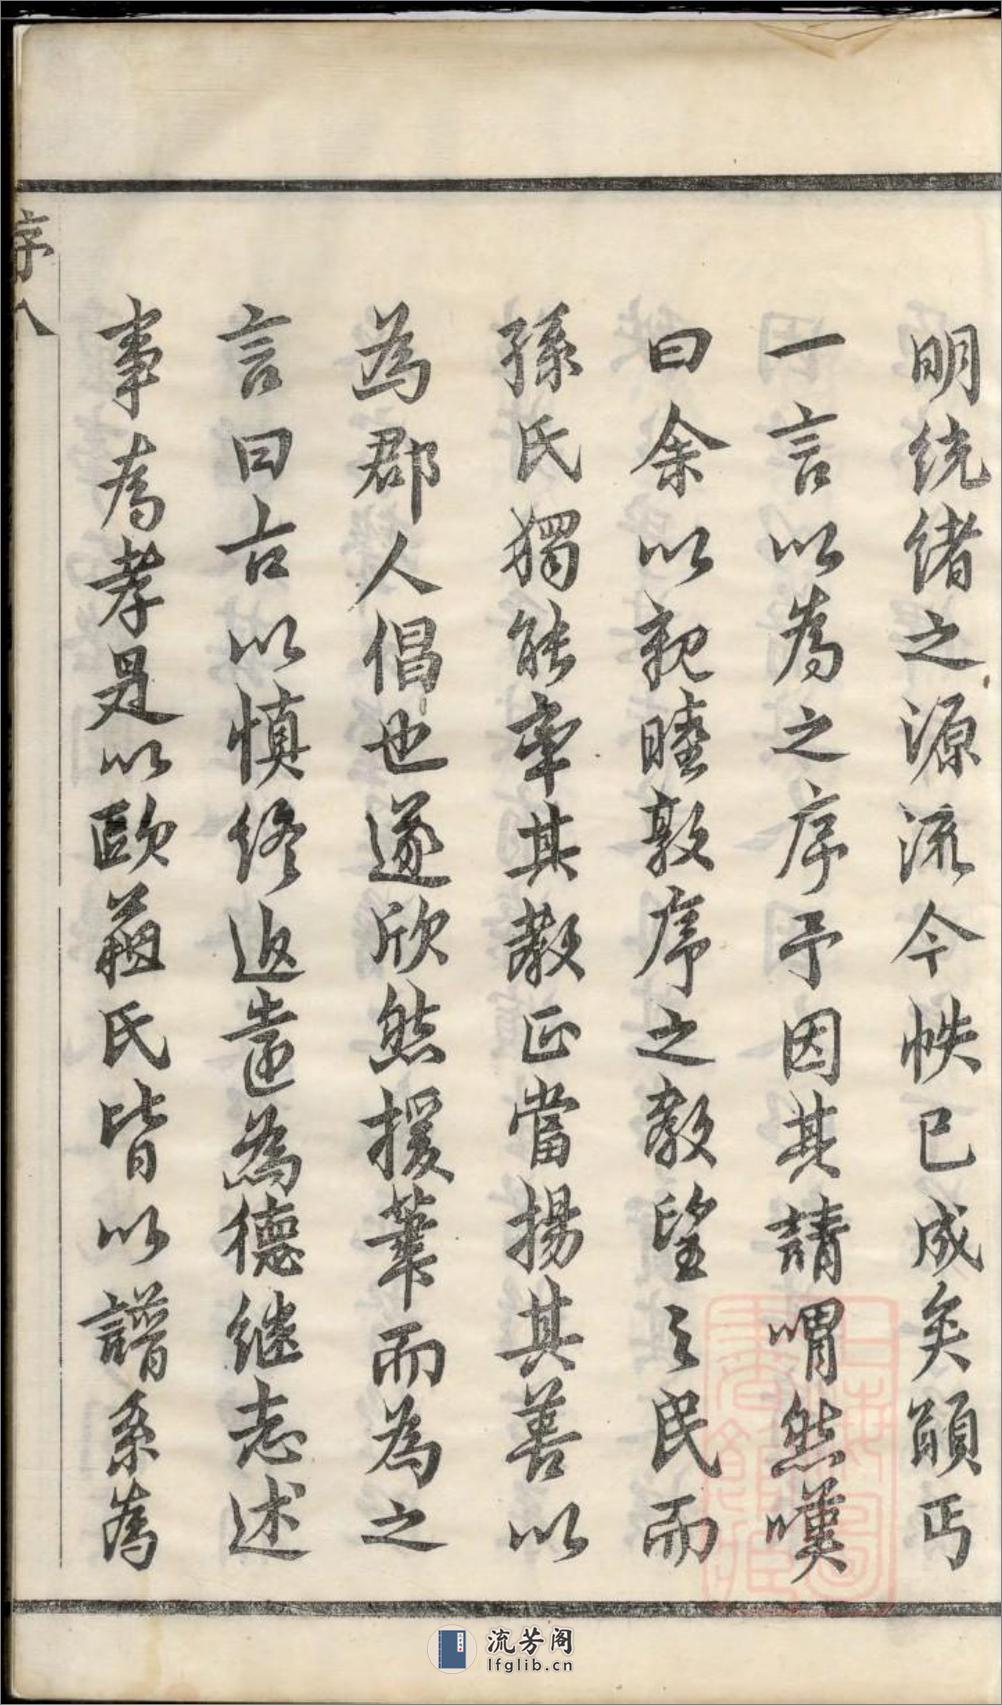 明统绪之源流今帙已成矣願丐
一言以為之序予因其請喟然嘆
曰余以親睦敦序之教望之民而
孫氏獨能率其教正當揚其善以
為郡人倡也遂欣然援筆而為之
言曰古以慎终追遠為德继志述
事為孝是以歐蘓氏皆以譜系為
序八
流芳阁
lfglib.cn